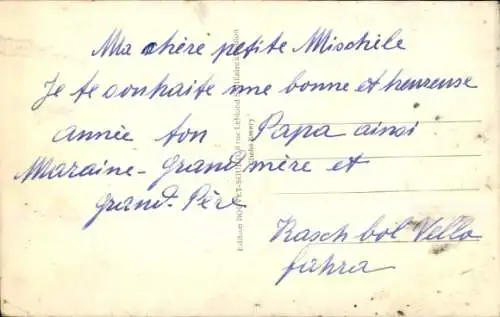 Ma chère petite Mischèle
Je te souhaite une bonne et heureuse
année ton Papa ainsi
Maraine - Grand mère et
grand - Père
Kasch bol Vello
fahra